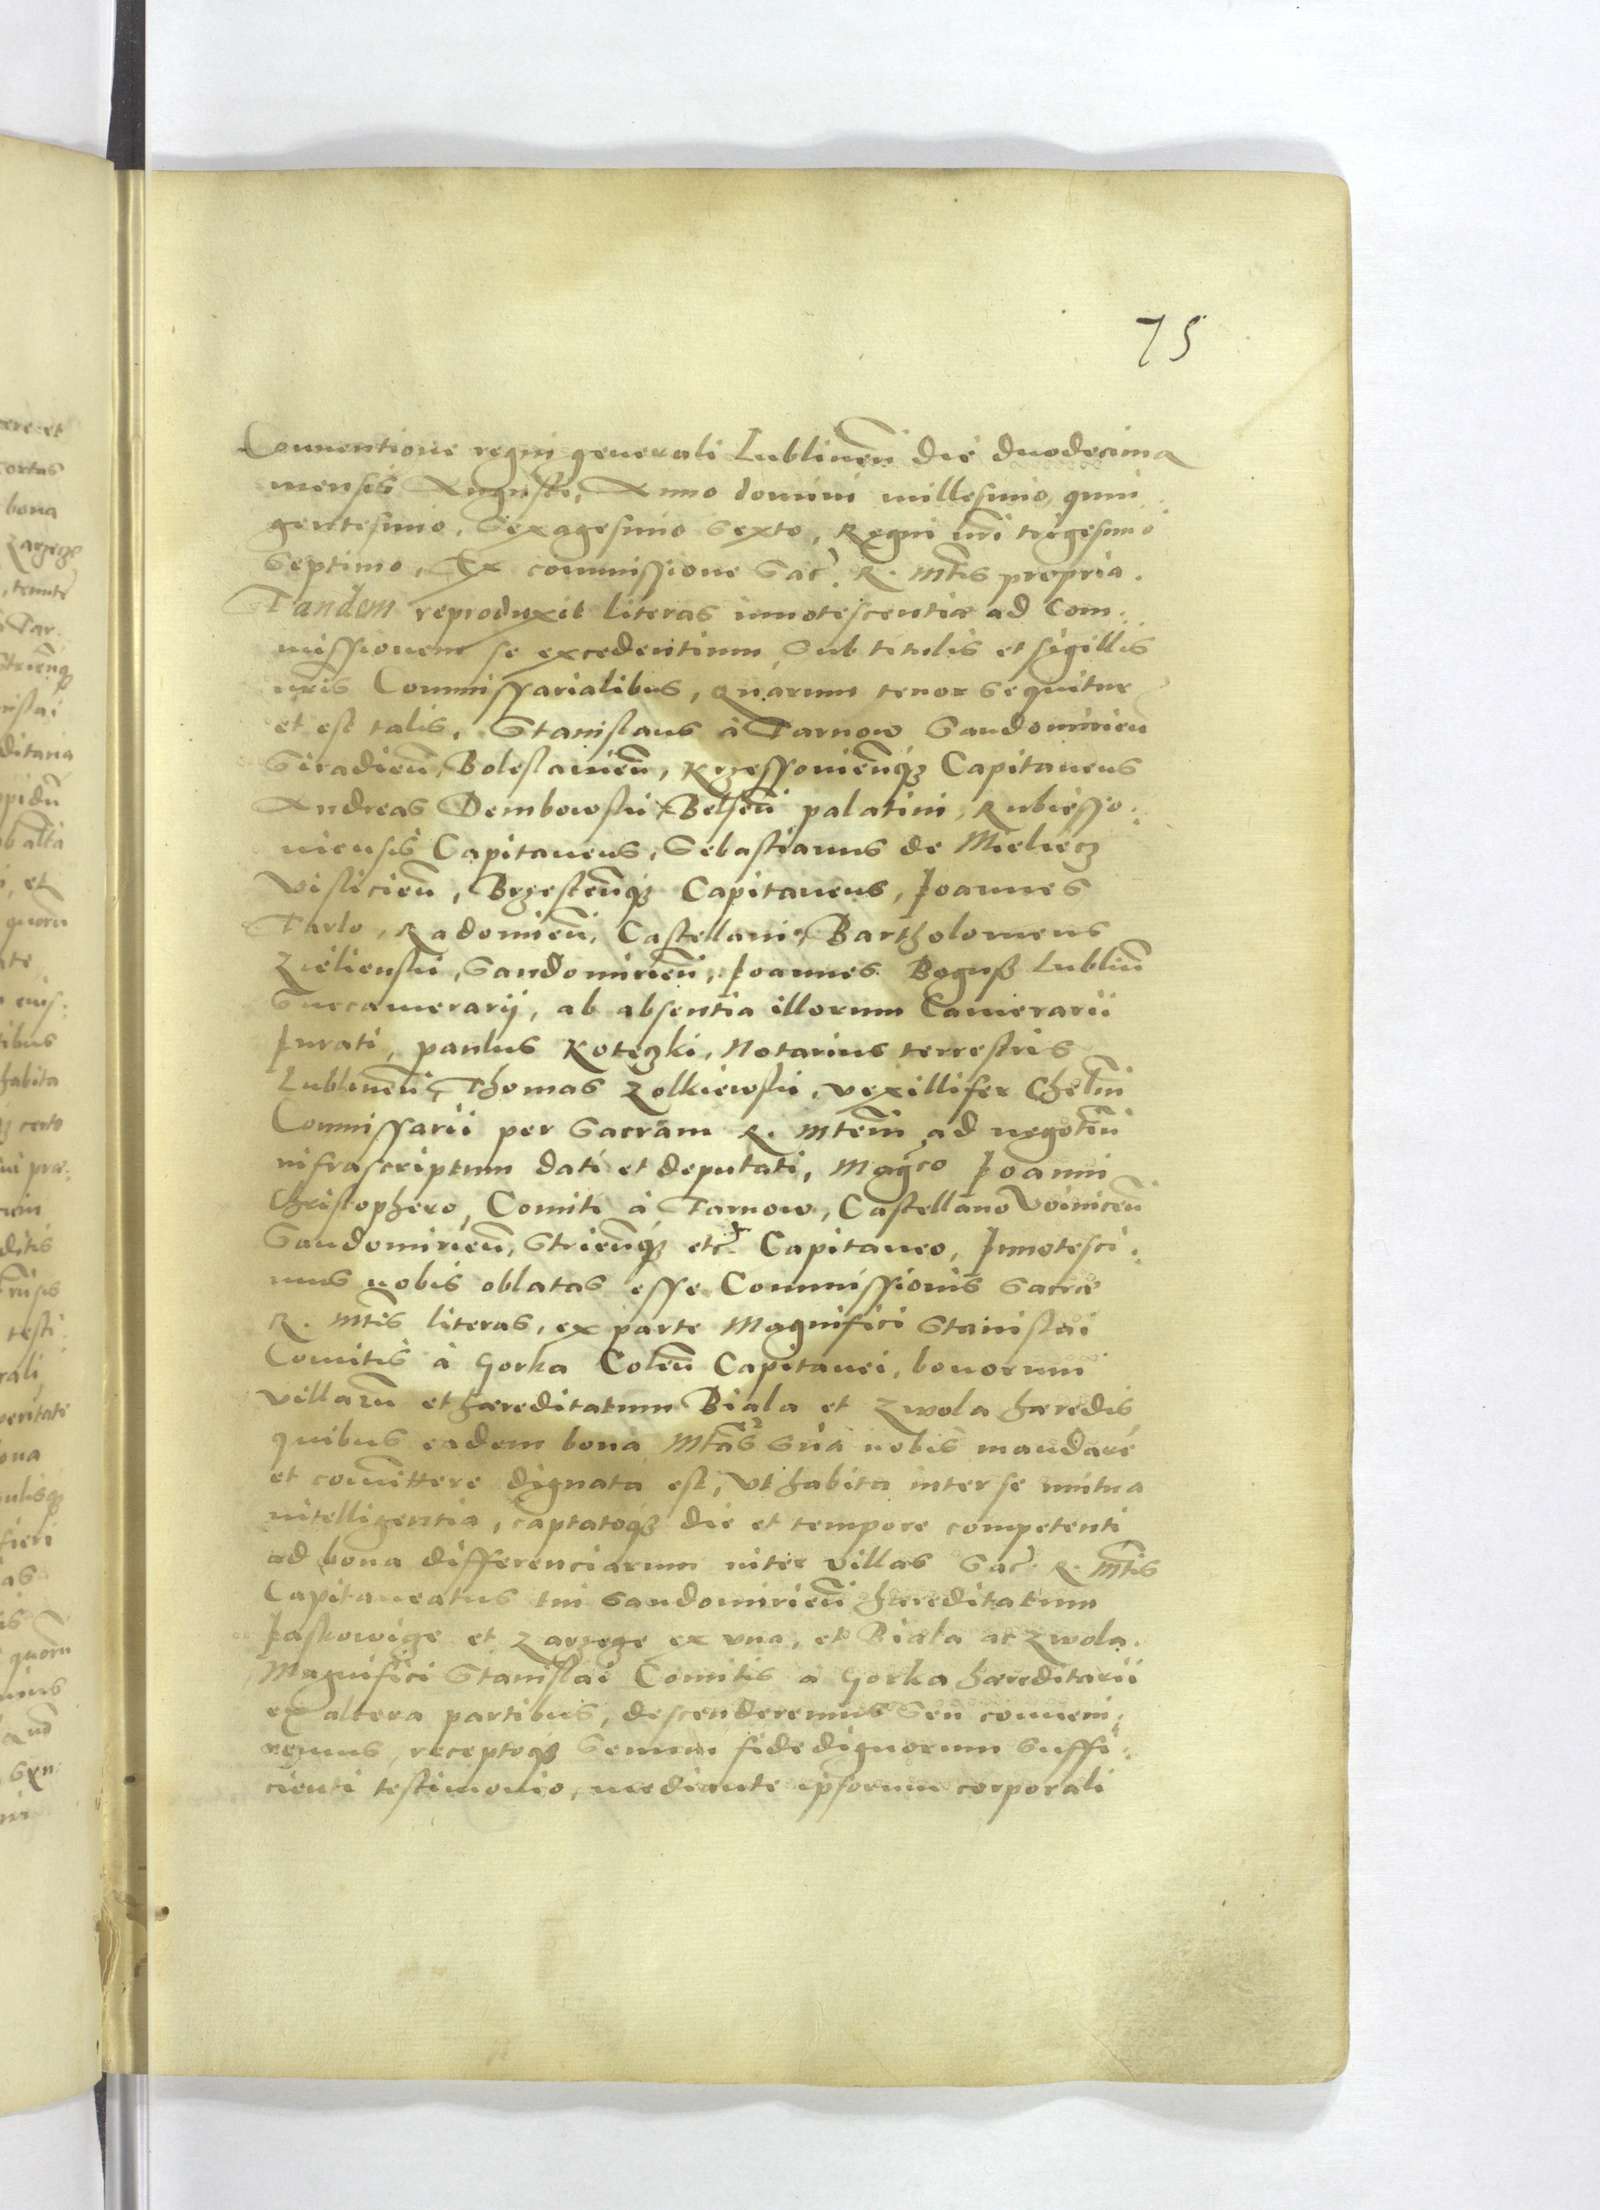 75
Conuentione regni generali Lublinen̄ die duodecima
mensis Augusti, Anno domini millesimo, quin
gentesimo, Sexagesimo Sexto, Regni nr̄i trigesimo
Septimo, Ex commissione Sac. R. Mtis propria.
Tandem reproduxit literas innotescentiæ ad Com:
missionem se excedentium, Sub titulis et sigillis
nr̄is Commissarialibus, quarum tenor sequitur
et est talis, Stanislaus à Tarnow Sandomirien̄
Siradien̄, Boleslauien̄, Krzessouien̄q₃ Capitaneus
Andreas Dembowski Belsen̄ palatini, Rubiesso:
uiensis Capitaneus, Sebastianus de Mielecz
Visliciem̄, Brzesten̄q₃ Capitaneus, Joannes
Tarlo, Radomien̄, Castellani, Bartholomeus
Zielienski, Sandomirien̄, Joannes Boguß Lublin̄
Succamerarij, ab absentia illorum Camerarii
Jurati, paulus Koteczki, Notarius terrestris
Lublinen̄, Thomas Zolkiewski, Vexillifer Chelm̄
Commissarii per Sacram R. Mtem ad negotiū
infrascriptum dati et deputati, Mag̃co Joanni
Christophero, Comiti à Tarnow, Castellano Voinicen̄
Sandomirien̄, Strien̄q₃ etc̃ Capitaneo, Innotesci:
mus nobis oblatas esse Commissionis Sacræ
R. Mtis literas, ex parte Magnifici Stanislai
Comitis à Gorka Colen̄ Capitanei, bonorum
villarū et hæreditatum Biala et Zwola hæredis
quibus eadem bona Mtas Sua nobis mandare
et comittere dignata est, Vt habita inter se mutua
intelligentia, captatoq₃ die et tempore competenti
ad bona differenciarum inter villas Sac. R. Mtis
Capitaneatus tui Sandomirien̄ hæreditatum
Jaskowice et Zarzecze ex vna, et Biala ac Zwola.
Magnifici Stanislai Comitis a Gorka hæreditarii
ex altera partibus, descenderemus Seu conueni:
remus, receptoq₃ Senum fidedignorum Suffi:
cienti testimonio, mediante ipsorum corporali